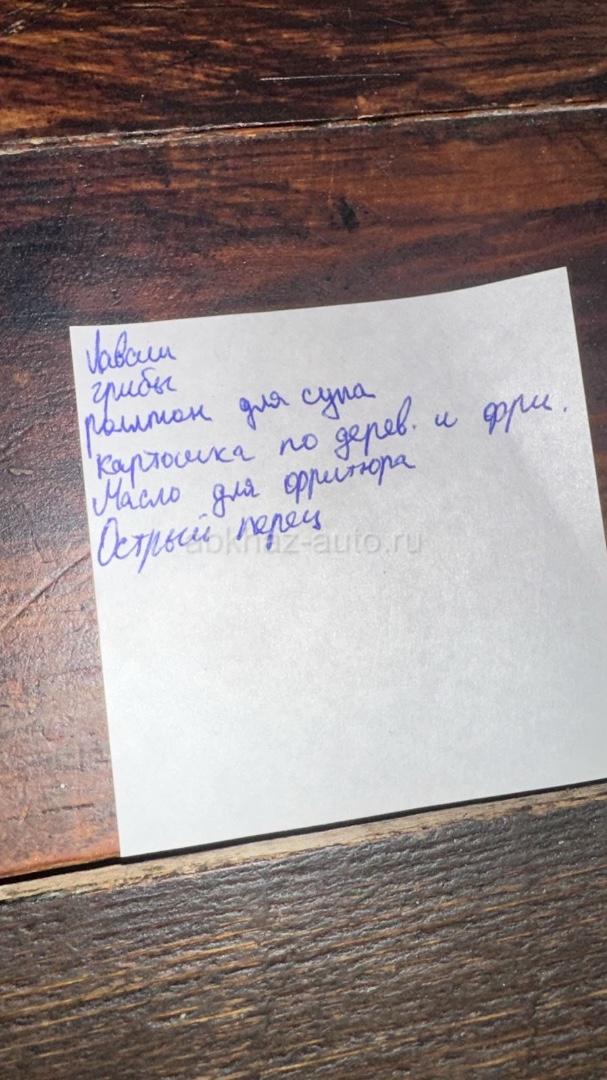 Лаваш
грибы
роллтон для супа
картошка по дерев. и фри.
Масло для фритюра
Острый перец
abkhaz-auto.ru